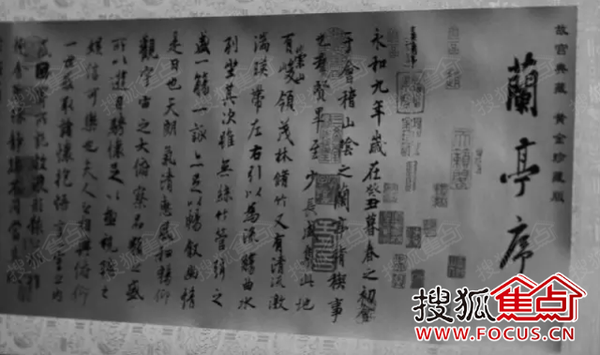 故宮典藏 黃金珍藏版
蘭亭序
永和九年歲在癸丑暮春之初會
于會稽山陰之蘭亭脩禊事
也羣賢畢至少長咸集此地
有崇山峻領茂林脩竹又有清流激
湍暎帶左右引以為流觴曲水
列坐其次雖無絲竹管弦之
盛一觴一詠亦足以暢敘幽情
是日也天朗氣清惠風和暢仰
觀宇宙之大俯察品類之盛
所以遊目騁懷足以極視聽之
娛信可樂也夫人之相與俯仰
一世或取諸懷抱悟言一室之內
或因寄所託放浪形骸
靜躁不同當其
搜狐焦点
WWW.FOCUS.CN